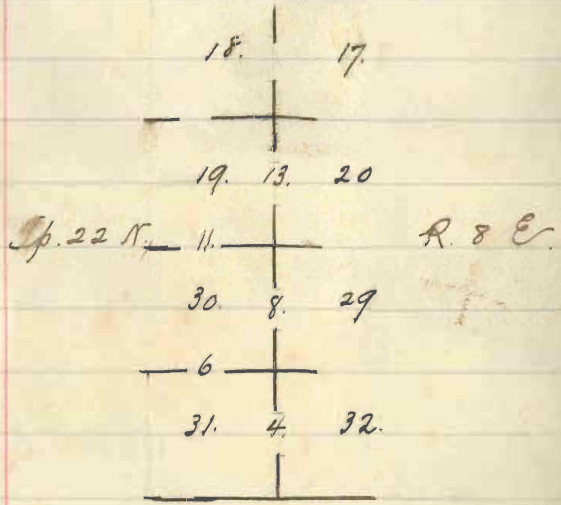 18. 17.
19. 13. 20
Tp. 22 N. 11. R. 8 E.
30. 8. 29
6
31. 4. 32.